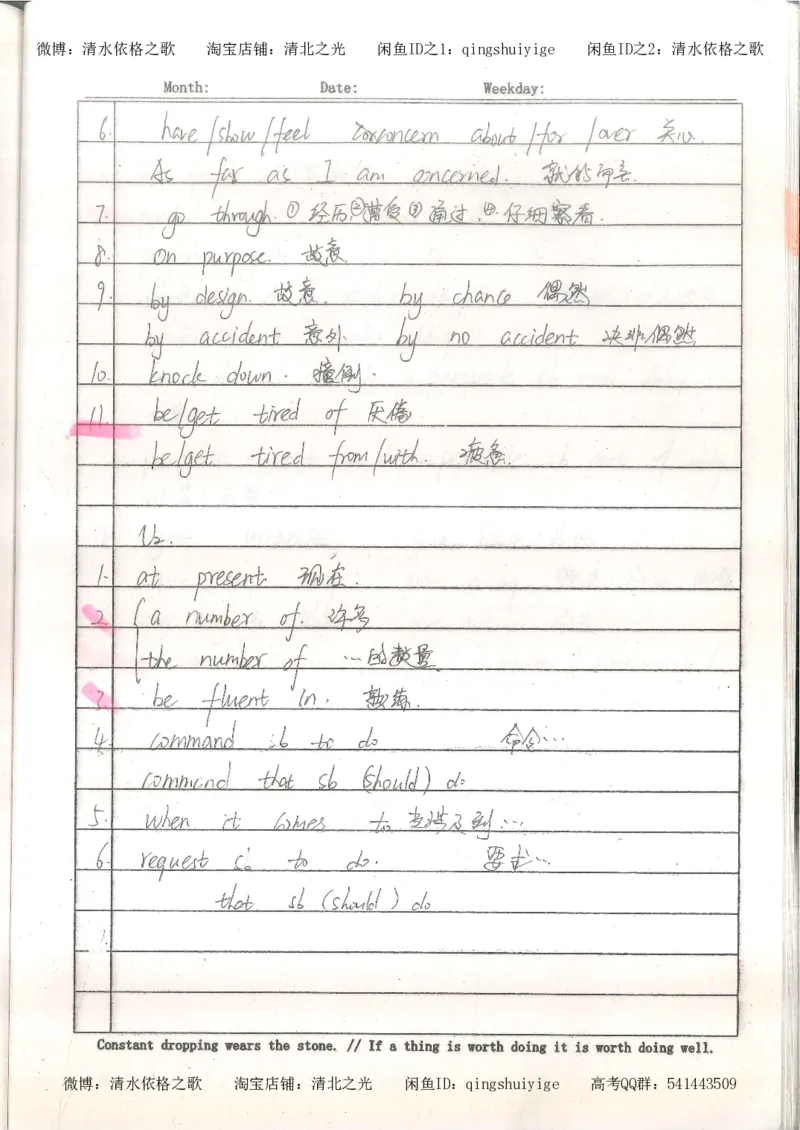 微博：清水依格之歌 淘宝店铺：清北之光 闲鱼ID之1：qingshuiyige 闲鱼ID之2：清水依格之歌
Month: Date: Weekday:
6. have/show/feel concern about/for/over 关心.
As far as I am concerned. 就我而言.
7. go through. ①经历②遭受③通过.④.仔细察看.
8. on purpose. 故意.
9. by design. 故意. by chance 偶然
by accident 意外. by no accident 决非偶然
10. knock down. 撞倒.
11. be/get tired of 厌倦
be/get tired from/with 疲惫.
U2.
1. at present. 现在.
2. a number of. 许多
the number of …的数量
3. be fluent in. 熟练.
4. command sb to do 命令…
command that sb (should) do
5. when it comes to 当涉及到…
6. request sb to do. 要求…
that sb (should) do
7.
Constant dropping wears the stone. // If a thing is worth doing it is worth doing well.
微博：清水依格之歌 淘宝店铺：清北之光 闲鱼ID：qingshuiyige 高考QQ群：541443509